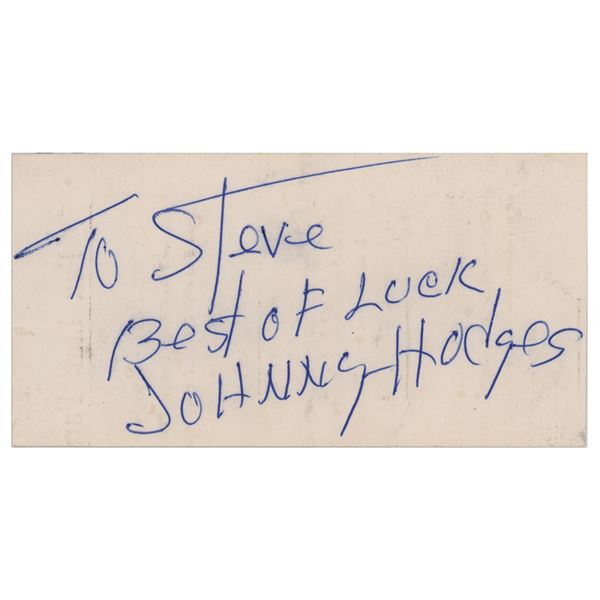 To Steve
Best OF Luck
JOHNNy Hodges